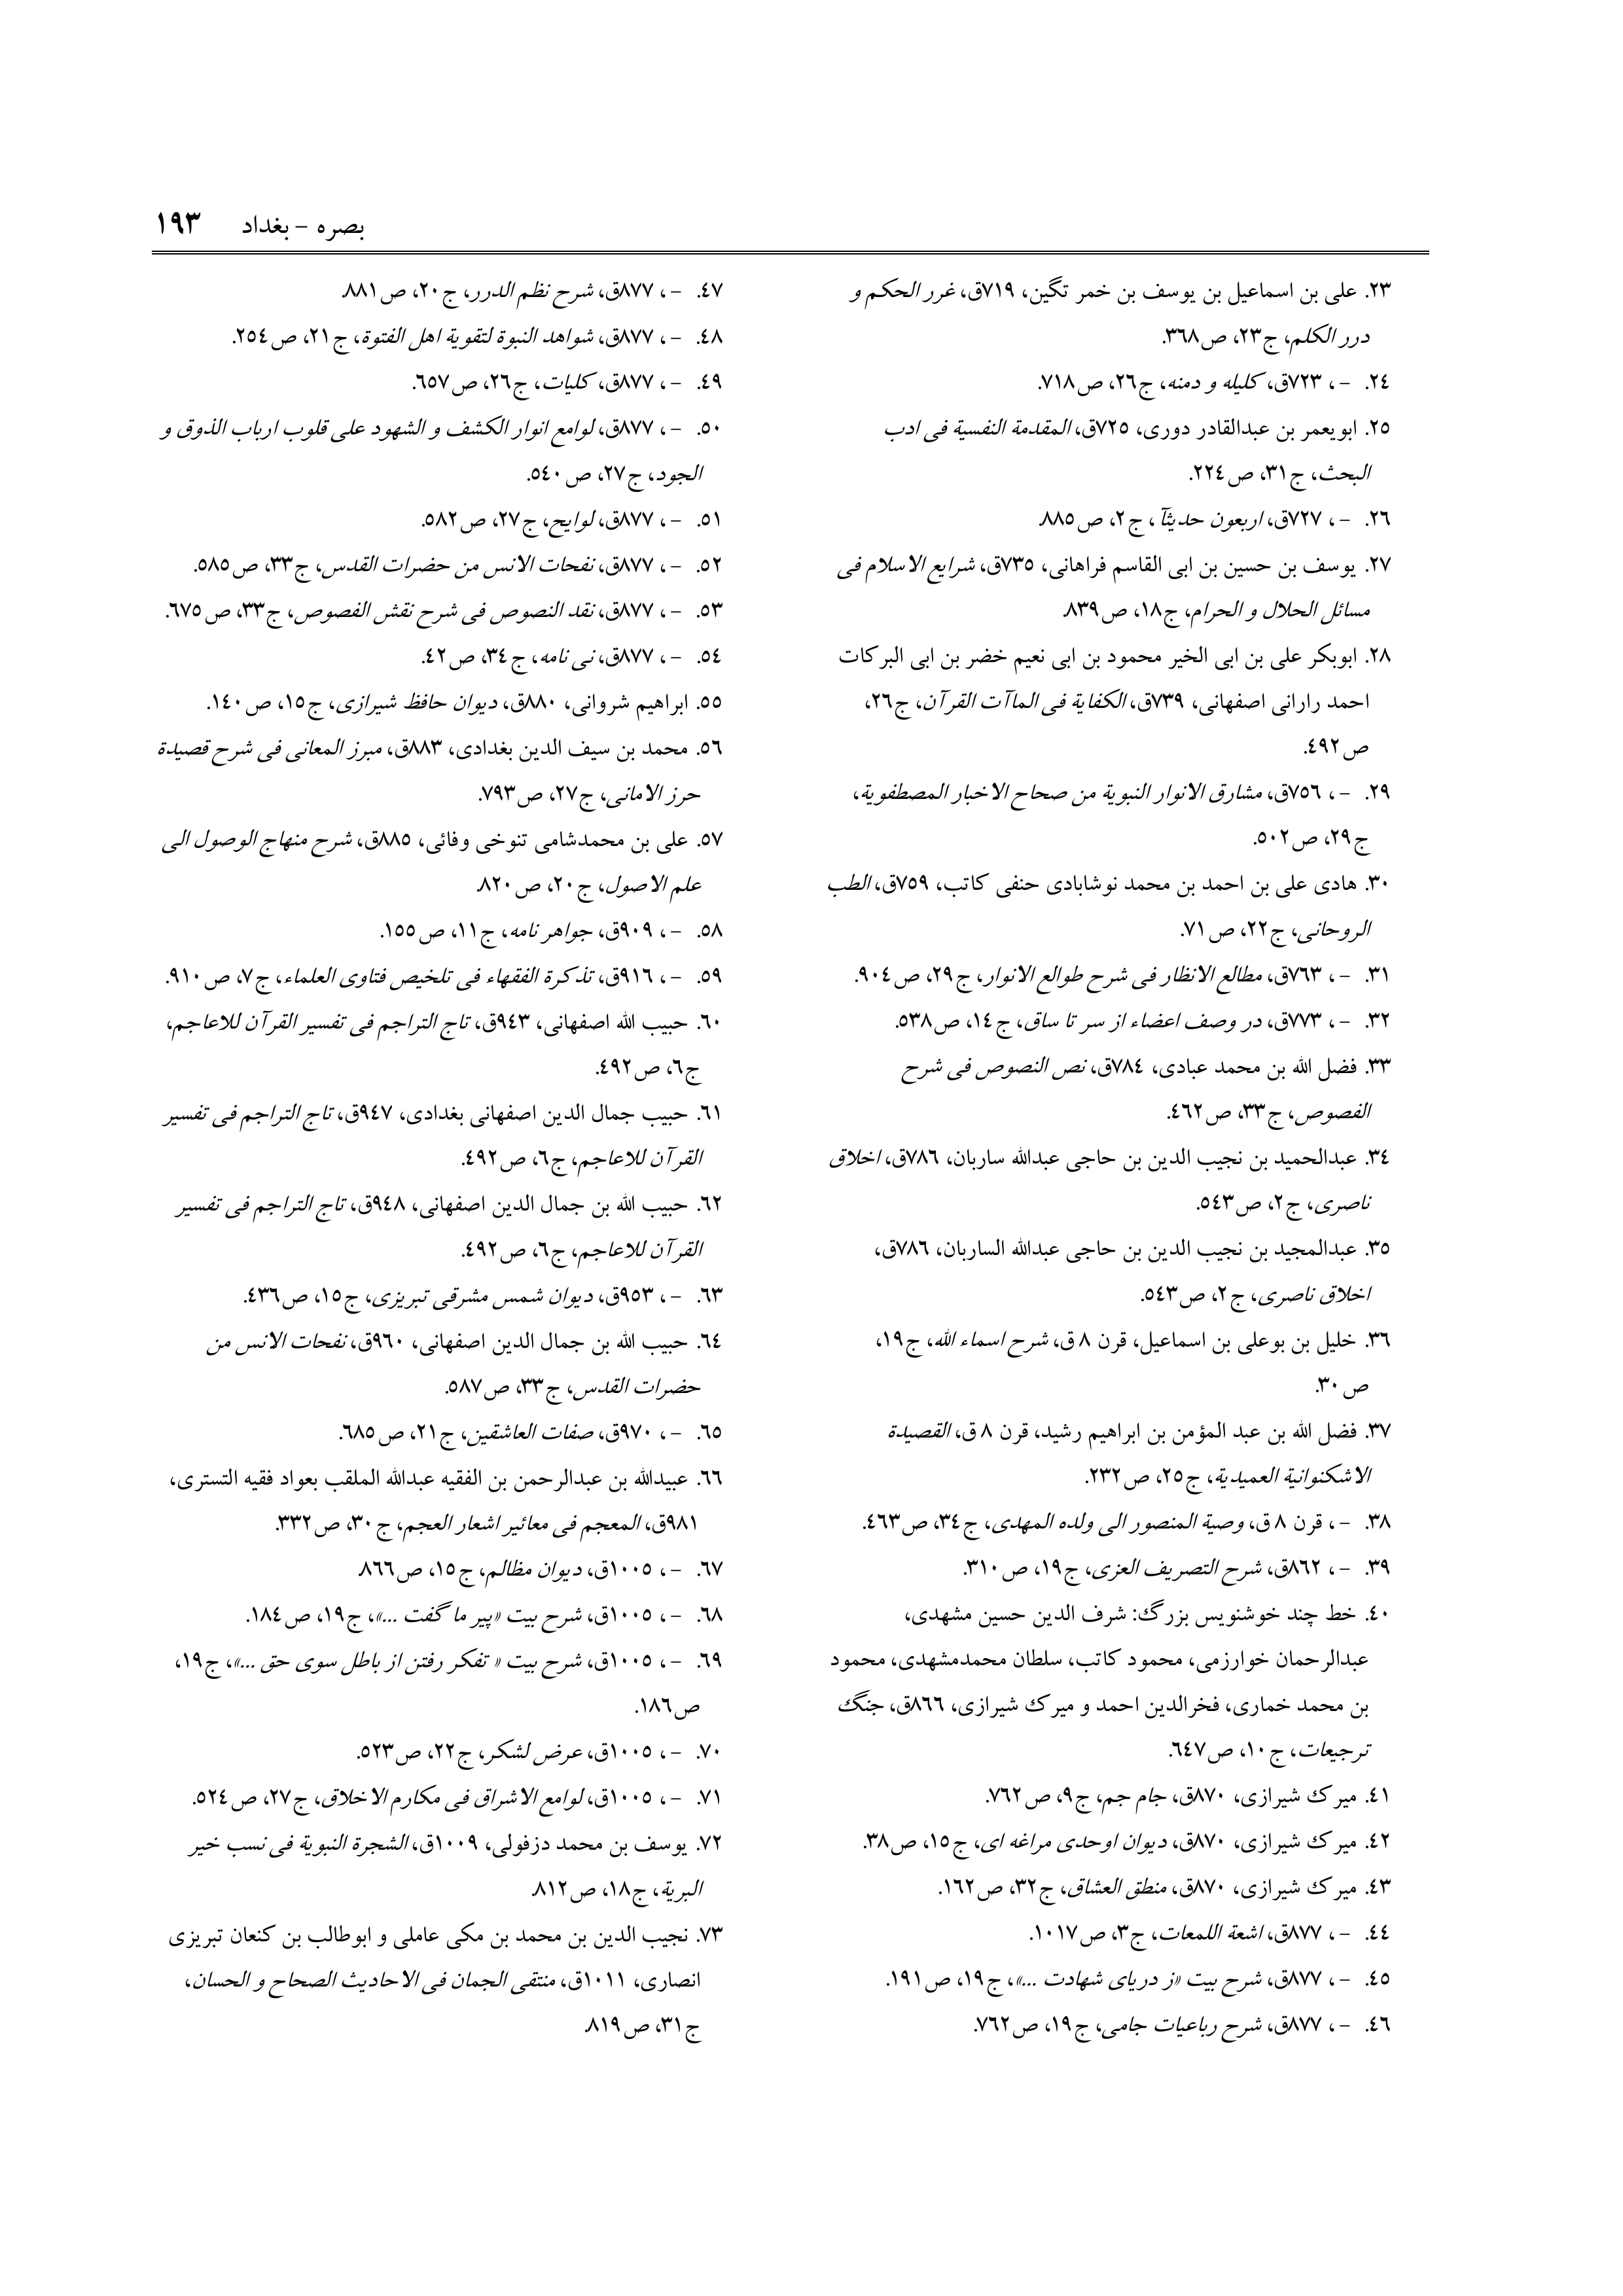 بصره – بغداد ١٩٣
٢٣. علی بن اسماعیل بن یوسف بن خمر تگین، ٧١٩ق، غرر الحکم و
درر الکلم، ج٢٣، ص٣٦٨.
٢٤. –، ٧٢٣ق، کلیله و دمنه، ج٢٦، ص٧١٨.
٢٥. ابویعمر بن عبدالقادر دوری، ٧٢٥ق، المقدمة النفسیة فی ادب
البحث، ج٣١، ص٢٢٤.
٢٦. –، ٧٢٧ق، اربعون حدیثآ، ج٢، ص٨٨٥.
٢٧. یوسف بن حسین بن ابی القاسم فراهانی، ٧٣٥ق، شرایع الاسلام فی
مسائل الحلال و الحرام، ج١٨، ص٨٣٩.
٢٨. ابوبکر علی بن ابی الخیر محمود بن ابی نعیم خضر بن ابی البرکات
احمد رارانی اصفهانی، ٧٣٩ق، الکفایة فی الماآت القرآن، ج٢٦،
ص٤٩٢.
٢٩. –، ٧٥٦ق، مشارق الانوار النبویة من صحاح الاخبار المصطفویة،
ج٢٩، ص٥٠٢.
٣٠. هادی علی بن احمد بن محمد نوشابادی حنفی کاتب، ٧٥٩ق، الطب
الروحانی، ج٢٢، ص٧١.
٣١. –، ٧٦٣ق، مطالع الانظار فی شرح طوالع الانوار، ج٢٩، ص٩٠٤.
٣٢. –، ٧٧٣ق، در وصف اعضاء از سر تا ساق، ج١٤، ص٥٣٨.
٣٣. فضل الله بن محمد عبادی، ٧٨٤ق، نص النصوص فی شرح
الفصوص، ج٣٣، ص٤٦٢.
٣٤. عبدالحمید بن نجیب الدین بن حاجی عبدالله ساربان، ٧٨٦ق، اخلاق
ناصری، ج٢، ص٥٤٣.
٣٥. عبدالمجید بن نجیب الدین بن حاجی عبدالله الساربان، ٧٨٦ق،
اخلاق ناصری، ج٢، ص٥٤٣.
٣٦. خلیل بن بوعلی بن اسماعیل، قرن ٨ ق، شرح اسماء الله، ج١٩،
ص٣٠.
٣٧. فضل الله بن عبد المؤمن بن ابراهیم رشید، قرن ٨ ق، القصیدة
الاشکنوانیة العمیدیة، ج٢٥، ص٢٣٢.
٣٨. –، قرن ٨ ق، وصیة المنصور الی ولده المهدی، ج٣٤، ص٤٦٣.
٣٩. –، ٨٦٢ق، شرح التصریف العزی، ج١٩، ص٣١٠.
٤٠. خط چند خوشنویس بزرگ: شرف الدین حسین مشهدی،
عبدالرحمان خوارزمی، محمود کاتب، سلطان محمدمشهدی، محمود
بن محمد خماری، فخرالدین احمد و میرک شیرازی، ٨٦٦ق، جنگ
ترجیعات، ج١٠، ص٦٤٧.
٤١. میرک شیرازی، ٨٧٠ق، جام جم، ج٩، ص٧٦٢.
٤٢. میرک شیرازی، ٨٧٠ق، دیوان اوحدی مراغه ای، ج١٥، ص٣٨.
٤٣. میرک شیرازی، ٨٧٠ق، منطق العشاق، ج٣٢، ص١٦٢.
٤٤. –، ٨٧٧ق، اشعة اللمعات، ج٣، ص١٠١٧.
٤٥. –، ٨٧٧ق، شرح بیت «ز دریای شهادت ...»، ج١٩، ص١٩١.
٤٦. –، ٨٧٧ق، شرح رباعیات جامی، ج١٩، ص٧٦٢.
٤٧. –، ٨٧٧ق، شرح نظم الدرر، ج٢٠، ص٨٨١.
٤٨. –، ٨٧٧ق، شواهد النبوة لتقویة اهل الفتوة، ج٢١، ص٢٥٤.
٤٩. –، ٨٧٧ق، کلیات، ج٢٦، ص٦٥٧.
٥٠. –، ٨٧٧ق، لوامع انوار الکشف و الشهود علی قلوب ارباب الذوق و
الجود، ج٢٧، ص٥٤٠.
٥١. –، ٨٧٧ق، لوایح، ج٢٧، ص٥٨٢.
٥٢. –، ٨٧٧ق، نفحات الانس من حضرات القدس، ج٣٣، ص٥٨٥.
٥٣. –، ٨٧٧ق، نقد النصوص فی شرح نقش الفصوص، ج٣٣، ص٦٧٥.
٥٤. –، ٨٧٧ق، نی نامه، ج٣٤، ص٤٢.
٥٥. ابراهیم شروانی، ٨٨٠ق، دیوان حافظ شیرازی، ج١٥، ص١٤٠.
٥٦. محمد بن سیف الدین بغدادی، ٨٨٣ق، مبرز المعانی فی شرح قصیدة
حرز الامانی، ج٢٧، ص٧٩٣.
٥٧. علی بن محمدشامی تنوخی وفائی، ٨٨٥ق، شرح منهاج الوصول الی
علم الاصول، ج٢٠، ص٨٢٠.
٥٨. –، ٩٠٩ق، جواهر نامه، ج١١، ص١٥٥.
٥٩. –، ٩١٦ق، تذکرة الفقهاء فی تلخیص فتاوی العلماء، ج٧، ص٩١٠.
٦٠. حبیب الله اصفهانی، ٩٤٣ق، تاج التراجم فی تفسیر القرآن للاعاجم،
ج٦، ص٤٩٢.
٦١. حبیب جمال الدین اصفهانی بغدادی، ٩٤٧ق، تاج التراجم فی تفسیر
القرآن للاعاجم، ج٦، ص٤٩٢.
٦٢. حبیب الله بن جمال الدین اصفهانی، ٩٤٨ق، تاج التراجم فی تفسیر
القرآن للاعاجم، ج٦، ص٤٩٢.
٦٣. –، ٩٥٣ق، دیوان شمس مشرقی تبریزی، ج١٥، ص٤٣٦.
٦٤. حبیب الله بن جمال الدین اصفهانی، ٩٦٠ق، نفحات الانس من
حضرات القدس، ج٣٣، ص٥٨٧.
٦٥. –، ٩٧٠ق، صفات العاشقین، ج٢١، ص٦٨٥.
٦٦. عبیدالله بن عبدالرحمن بن الفقیه عبدالله الملقب بعواد فقیه التستری،
٩٨١ق، المعجم فی معائیر اشعار العجم، ج٣٠، ص٣٣٢.
٦٧. –، ١٠٠٥ق، دیوان مظالم، ج١٥، ص٨٦٦.
٦٨. –، ١٠٠٥ق، شرح بیت «پیر ما گفت ...»، ج١٩، ص١٨٤.
٦٩. –، ١٠٠٥ق، شرح بیت « تفکر رفتن از باطل سوی حق ...»، ج١٩،
ص١٨٦.
٧٠. –، ١٠٠٥ق، عرض لشکر، ج٢٢، ص٥٢٣.
٧١. –، ١٠٠٥ق، لوامع الاشراق فی مکارم الاخلاق، ج٢٧، ص٥٢٤.
٧٢. یوسف بن محمد دزفولی، ١٠٠٩ق، الشجرة النبویة فی نسب خیر
البریة، ج١٨، ص٨١٢.
٧٣. نجیب الدین بن محمد بن مکی عاملی و ابوطالب بن کنعان تبریزی
انصاری، ١٠١١ق، منتقی الجمان فی الاحادیث الصحاح و الحسان،
ج٣١، ص٨١٩.